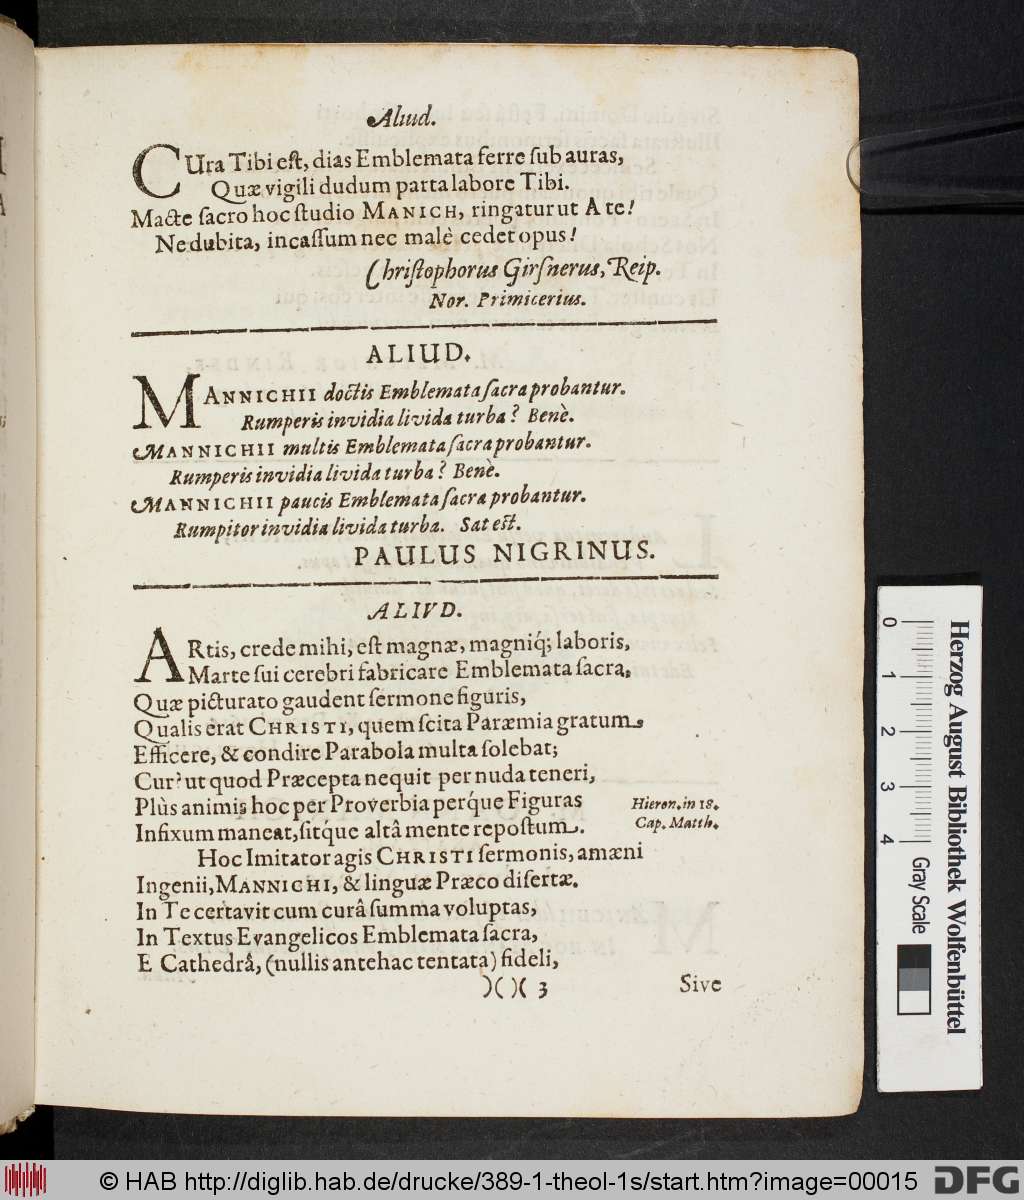 Aliud.
CUra Tibi eſt, dias Emblemata ferre ſub auras,
Quæ vigili dudum parta labore Tibi.
Macte ſacro hoc ſtudio MANICH, ringatur ut Ate!
Ne dubita, incaſſum nec malè cedet opus!
Chriſtophorus Girſnerus, Reip.
Nor. Primicerius.
ALIUD.
MANNICHII doctis Emblemata ſacra probantur.
Rumperis invidia livida turba? Benè.
MANNICHII multis Emblemata ſacra probantur.
Rumperis invidia livida turba? Benè.
MANNICHII paucis Emblemata ſacra probantur.
Rumpitor invidia livida turba. Sat eſt.
PAULUS NIGRINUS.
ALIVD.
ARtis, crede mihi, eſt magnæ, magniq́; laboris,
Marte ſui cerebri fabricare Emblemata ſacra,
Quæ picturato gaudent ſermone figuris,
Qualis erat CHRISTI, quem ſcita Paræmia gratum
Efficere, & condire Parabola multa ſolebat;
Cur? ut quod Præcepta nequit per nuda teneri,
Plùs animis hoc per Proverbia perq́ue Figuras
Infixum maneat, ſitq́ue altâ mente repoſtum.
Hieron. in 18.
Cap. Matth.
Hoc Imitator agis CHRISTI ſermonis, amæni
Ingenii, MANNICHI, & linguæ Præco diſertæ.
In Te certavit cum curâ ſumma voluptas,
In Textus Evangelicos Emblemata ſacra,
E Cathedrâ, (nullis antehac tentata) fideli,
)( )( 3
Sive
0 1 2 3 4
Herzog August Bibliothek Wolfenbüttel
Gray Scale
© HAB http://diglib.hab.de/drucke/389-1-theol-1s/start.htm?image=00015
DFG